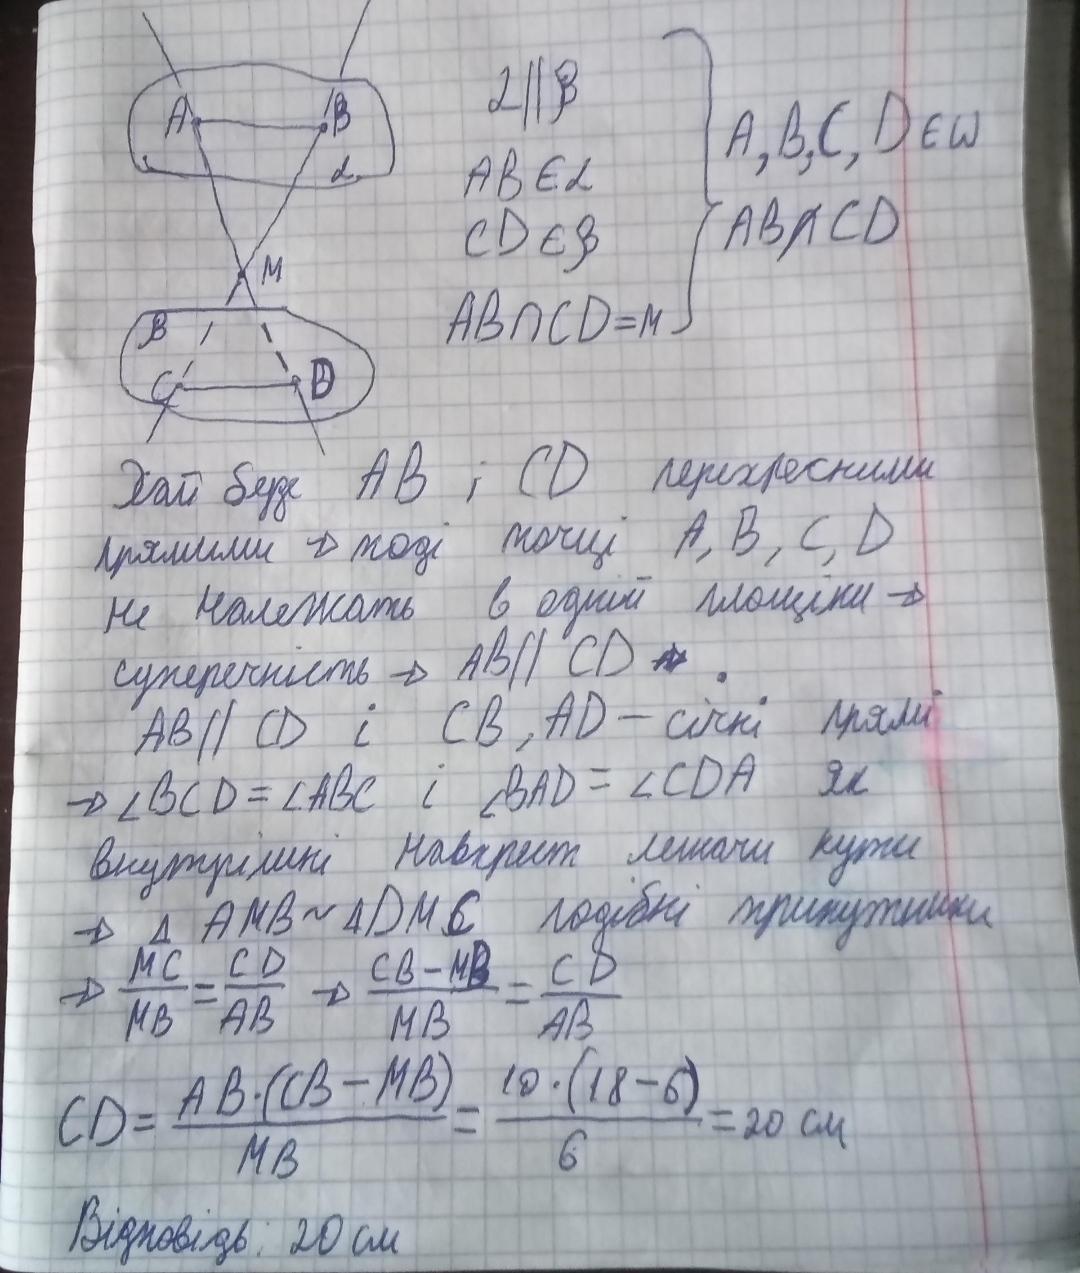 A B
α
M
β
C D
α||β
AB∈α
CD∈β
AB∩CD=M
A, B, C, D∈ω
AB∦CD
Хай буде AB і CD перехресними
прямими → тоді точці A, B, C, D
не належать в одній площіни →
суперечність → AB|| CD .
AB|| CD і CB, AD — січні прямі
→ ∠BCD=∠ABC і ∠BAD=∠CDA як
внутрішні навхрест лежачи кути
→ Δ AMB~ΔDMC подібні трикутники
→ MC/MB = CD/AB → CB-MB/MB = CD/AB
CD= AB·(CB-MB)/MB = 10·(18-6)/6 =20 см
Відповідь: 20 см